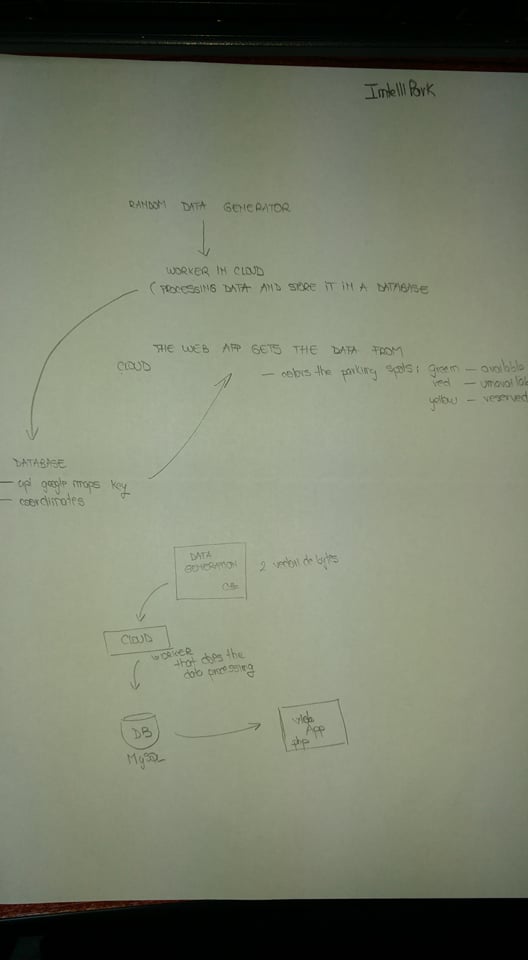 IntelliPark
RANDOM DATA GENERATOR
WORKER IN CLOUD
( PROCESSING DATA AND STORE IT IN A DATABASE
THE WEB APP GETS THE DATA FROM
CLOUD
– colors the parking spots: green – available
red – unavailab
yellow – reserved
DATABASE
– api google maps key
– coordinates
DATA
GENERATION
C#
2 vectori de bytes
CLOUD
WORKER
that does the
data processing
DB
MySQL
Web
App
php